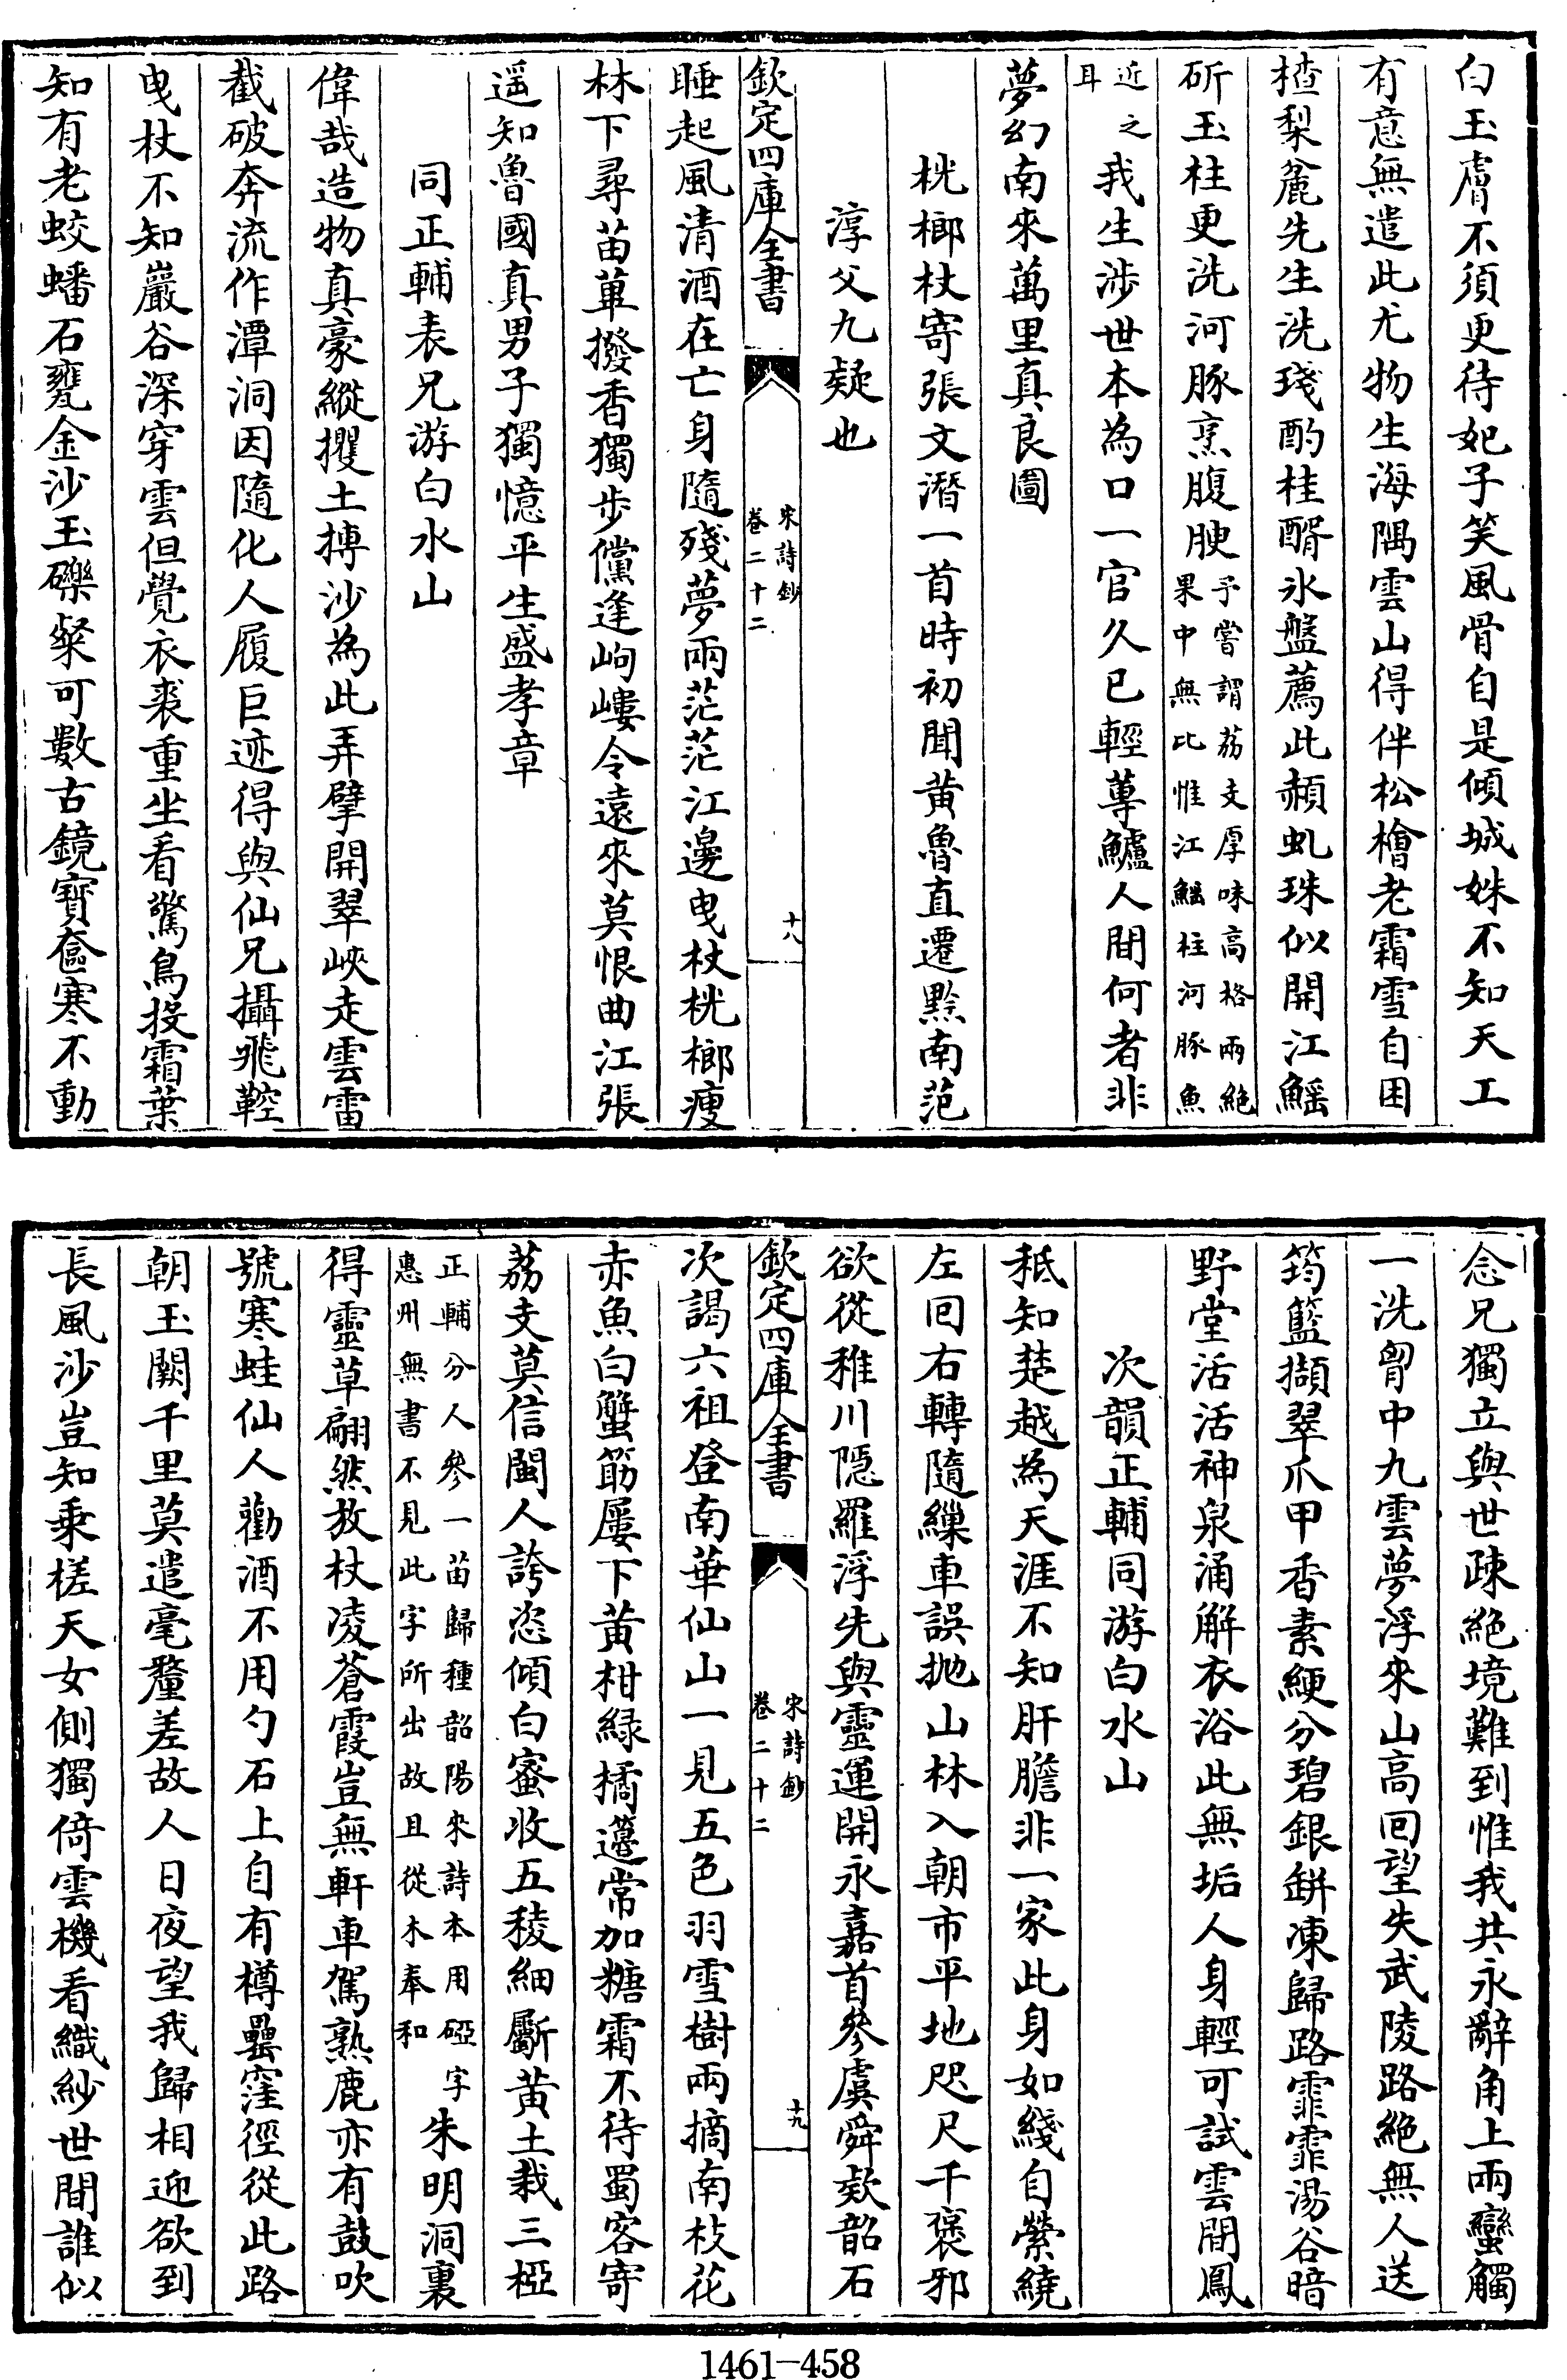 白玉膚不須更待妃子笑風骨自是傾城姝不知天工
有意無遣此尤物生海隅雲山得伴松檜老霜雪自困
楂梨麄先生洗琖酌桂醑氷盤薦此赬虬珠似開江鰩
斫玉柱更洗河豚烹腹腴予嘗謂荔支厚味高格兩絶果中無比惟江鰩柱河豚魚
近之耳我生涉世本為口一官久已輕蓴鱸人間何者非
夢幻南來萬里真良圖
桄榔杖寄張文潛一首時初聞黄魯直遷黔南范
淳父九疑也
欽定四庫全書
宋詩鈔
卷二十二
十八
睡起風清酒在亡身隨殘夢兩茫茫江邊曳杖桄榔瘦
林下尋苗蓽撥香獨步儻逢岣嶁令遠來莫恨曲江張
遥知魯國真男子獨憶平生盛孝章
同正輔表兄游白水山
偉哉造物真豪縱攫土摶沙為此弄擘開翠峽走雲雷
截破奔流作潭洞因隨化人履巨迹得與仙兄攝飛鞚
曳杖不知巖谷深穿雲但覺衣裘重坐看驚鳥投霜葉
知有老蛟蟠石甕金沙玉礫粲可數古鏡寶奩寒不動
念兄獨立與世疎絶境難到惟我共永辭角上兩蠻觸
一洗胷中九雲夢浮來山高回望失武陵路絶無人送
筠籃擷翠爪甲香素綆分碧銀缾凍歸路霏霏湯谷暗
野堂活活神泉涌解衣浴此無垢人身輕可試雲間鳳
次韻正輔同游白水山
秪知楚越為天涯不知肝膽非一家此身如綫自縈繞
左回右轉隨繅車誤抛山林入朝市平地咫尺千褒邪
欲從稚川隠羅浮先與靈運開永嘉首參虞舜欵韶石
欽定四庫全書
宋詩鈔
卷二十二
十九
次謁六祖登南華仙山一見五色羽雪樹兩摘南枝花
赤魚白蟹筯屢下黄柑緑橘籩常加糖霜不待蜀客寄
荔支莫信閩人誇恣傾白蜜收五稜細斸黄土栽三椏
正輔分人參一苗歸種韶陽來詩本用碰字惠州無書不見此字所出故且從木奉和朱明洞裏
得靈草翩然放杖凌蒼霞豈無軒車駕熟鹿亦有鼓吹
號寒蛙仙人勸酒不用勺石上自有樽罍窪徑從此路
朝玉闕千里莫遣毫釐差故人日夜望我歸相迎欲到
長風沙豈知乗槎天女側獨倚雲機看織紗世間誰似
1461-458